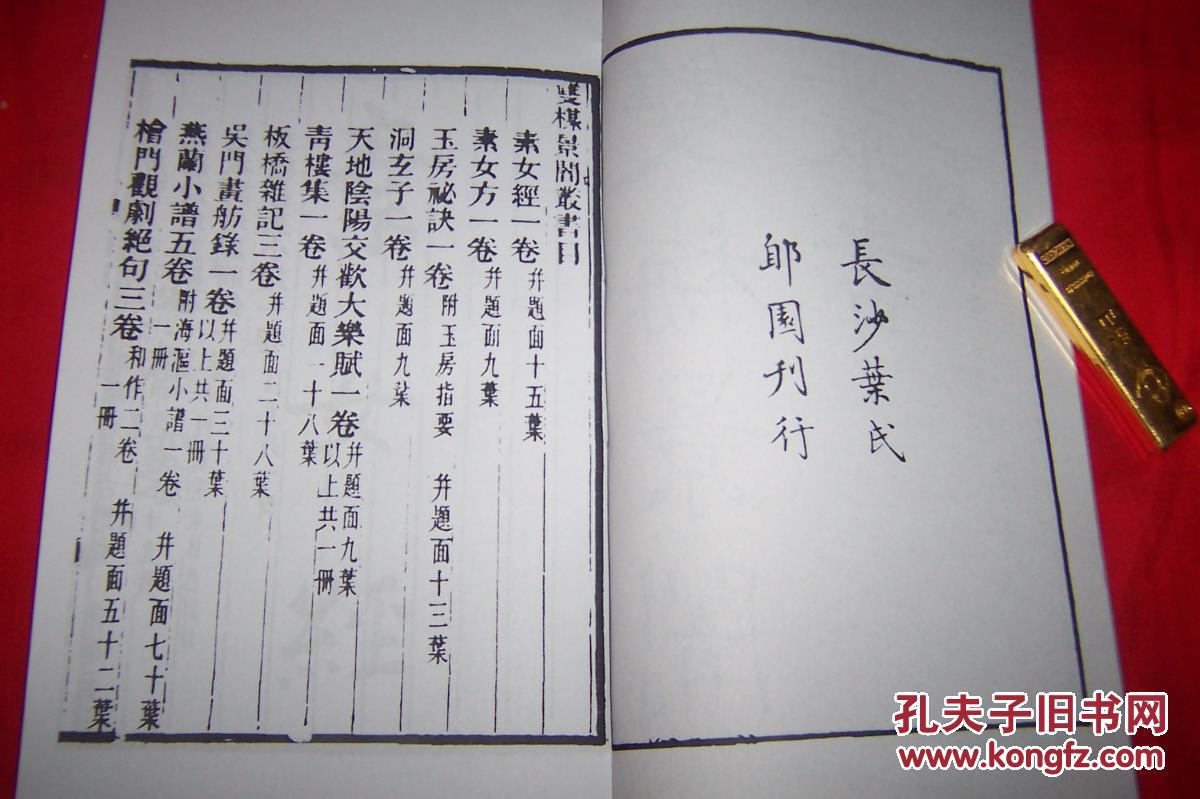 長沙葉氏
郋園刊行
雙楳景闇叢書目
素女經一卷 幷題面十五葉
素女方一卷 幷題面九葉
玉房祕訣一卷 附玉房指要 幷題面十三葉
洞玄子一卷 幷題面九葉
天地陰陽交歡大樂賦一卷 幷題面九葉 以上共一冊
靑樓集一卷 幷題面二十八葉
板橋雜記三卷 幷題面二十八葉
吳門畫舫錄一卷 幷題面三十葉 以上共一冊
燕蘭小譜五卷 附海漚小譜一卷 幷題面七十葉 一冊
檜門觀劇絕句三卷 和作二卷 幷題面五十二葉 一冊
孔夫子旧书网
www.kongfz.com